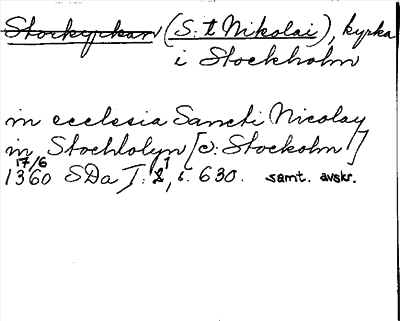 Storkyrkan (S:t Nikolai), kyrka
i Stockholm
in ecclesia Sancti Nicolay
in Stochlolyn [ɔ: Stockolm!]
17/6
1360 SDa I: 1, s. 630. samt. avskr.